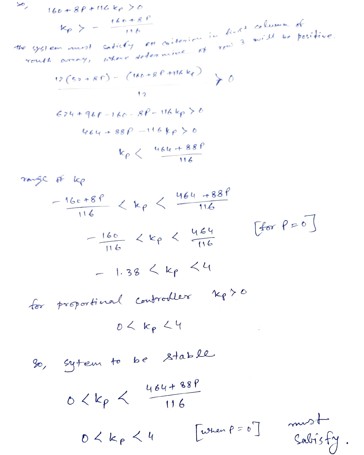 So,
160 + 8P + 116 Kp > 0
Kp > - (160 + 8P) / 116
the system must satisfy on criterion in first column of
routh array, where determinant of row 3 will be positive.
(12(52 + 8P) - (160 + 8P + 116 Kp)) / 12 > 0
624 + 96P - 160 - 8P - 116 Kp > 0
464 + 88P - 116 Kp > 0
Kp < (464 + 88P) / 116
range of Kp
- (160 + 8P) / 116 < Kp < (464 + 88P) / 116
- 160 / 116 < Kp < 464 / 116 [for P = 0]
- 1.38 < Kp < 4
for proportinal controller Kp > 0
0 < Kp < 4
So, sytem to be stable
0 < Kp < (464 + 88P) / 116
0 < Kp < 4 [when P = 0] must satisfy.